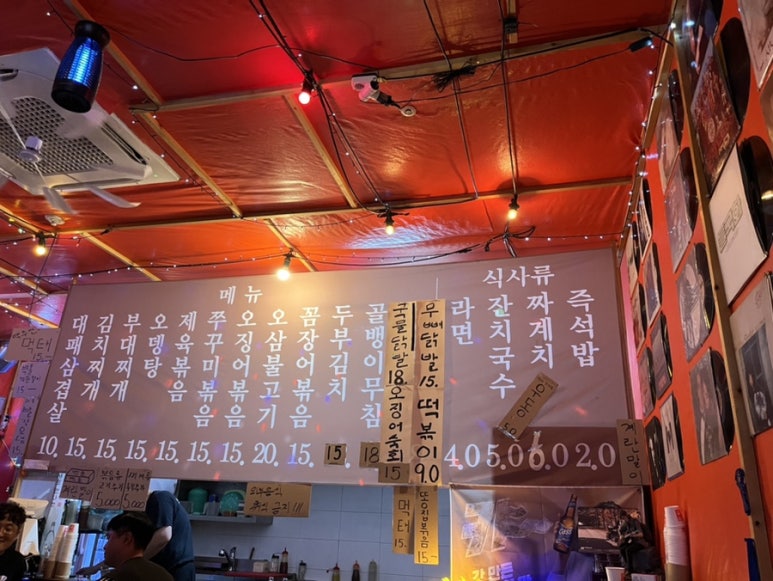 메뉴
대패삼겹살 10.
김치찌개 15.
부대찌개 15.
오뎅탕 15.
제육볶음 15.
쭈꾸미볶음 15.
오징어볶음 15.
오삼불고기 20.
꼼장어볶음 15.
두부김치 15
골뱅이무침 18
국물닭발 18.
오징어숙회 15
우뼈닭발 15.
떡볶이 9.0
식사류
라면 4.0
잔치국수 5.0
짜계치
즉석밥 2.0
계란말이
먹태
15-
먹태
똥집볶음
15-
5,000
5,000
외부음식
Cass